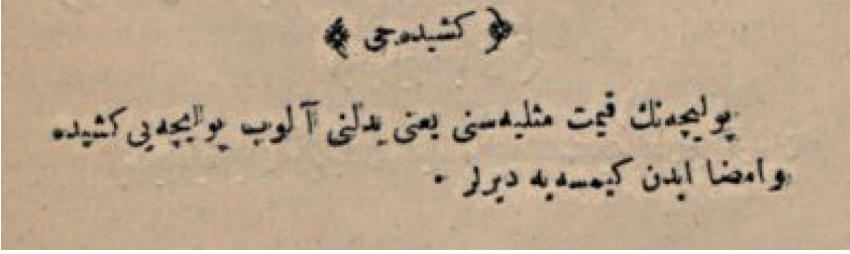 ﴿ كشیده‌جی ﴾
پولیچه‌نك قیمت مثلیه‌سنی یعنی بدلنی آلوب پولیچه‌یی كشیده
و امضا ایدن كیمسه‌یه دیرلر .